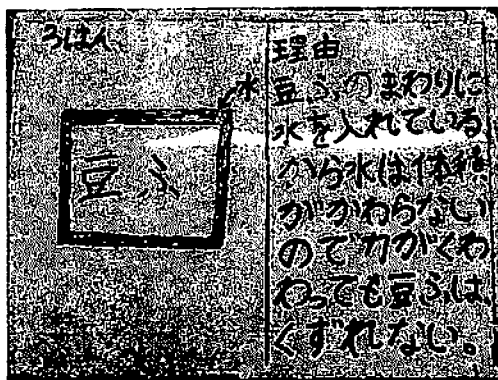 3はん
水
豆ふ
理由
豆ふのまわりに
水を入れている
から水は体積
がかわらない
ので力がくわ
わっても豆ふは、
くずれない。